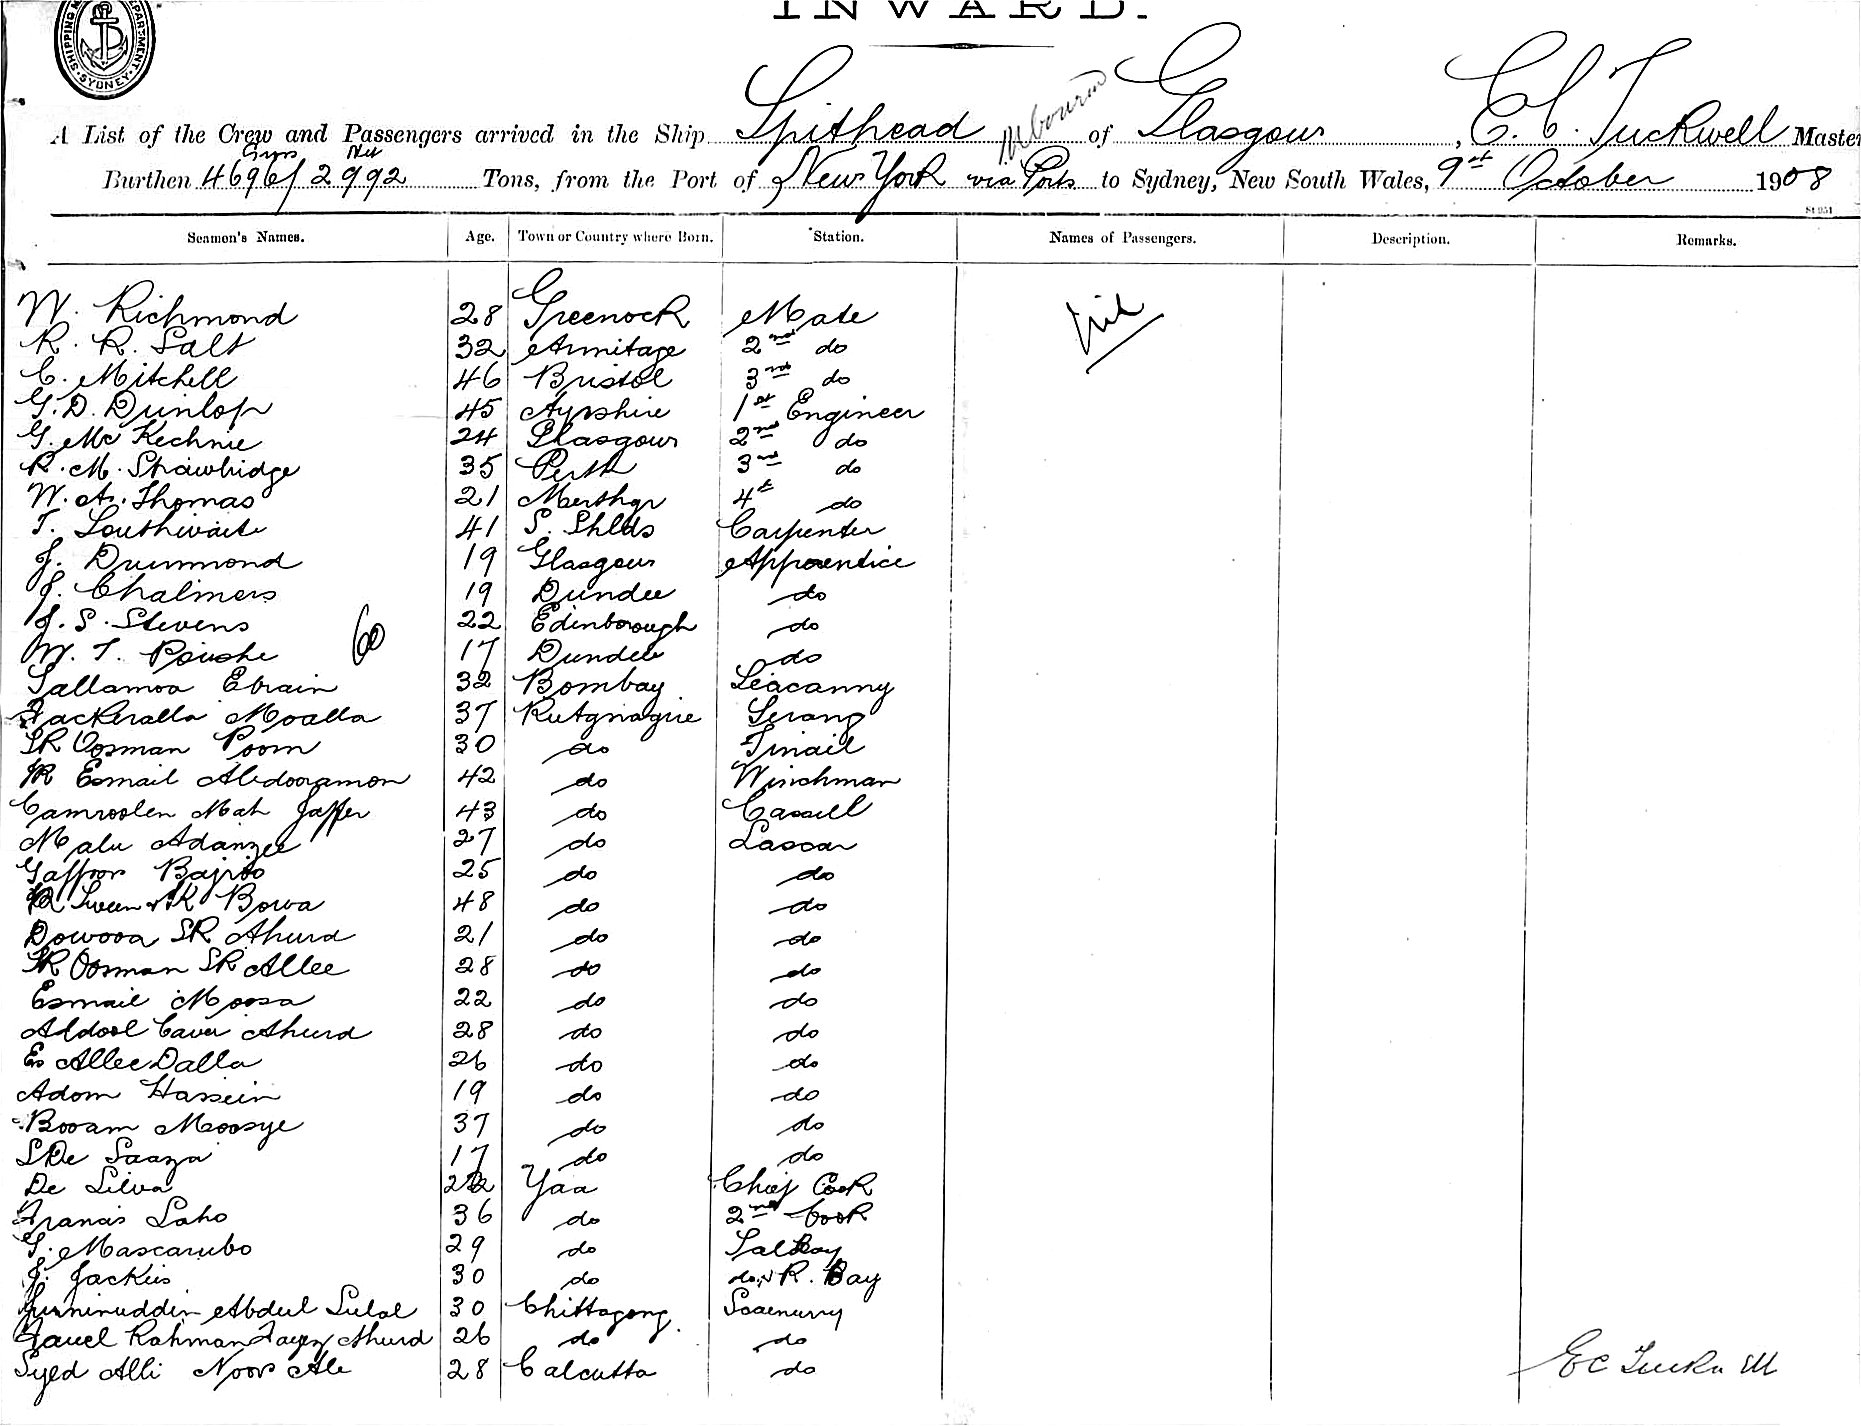 INWARD.
SHIPPING M DEPARTMENT. SYDNEY
A List of the Crew and Passengers arrived in the Ship Spithead of Glasgow, E. C. Tuckwell Master
Melbourne
Gross Net
Burthen 4696/2992 Tons, from the Port of New York via Ports to Sydney, New South Wales, 9th October 1908
Seamen's Names. Age. Town or Country where Born. Station. Names of Passengers. Description. Remarks.
W. Richmond 28 Greenock Mate Nil
R. R. Salt 32 Armitage 2nd do
C. Mitchell 46 Bristol 3rd do
G. D. Dunlop 45 Ayrshire 1st Engineer
G. McKechnie 24 Glasgow 2nd do
R. M. Strawbridge 35 Perth 3rd do
W. A. Thomas 21 Merthyr 4th do
T. Louthwaite 41 S. Shlds Carpenter
J. Drummond 19 Glasgow Apprentice
J. Chalmers 19 Dundee do
J. S. Stevens 22 Edinborough do
W. T. 17 Dundee do
60
Sallamoa Ebrain 32 Bombay Seacanny
Fackeralla Moalla 37 Rutgnagire Serang
SK Oosman Poom 30 do Tindil
SK Esmail Abdooramon 42 do Winchman
Camroolen Mah Jaffer 43 do Cassell
Malu Adamzee 27 do Lascar
Gaffoor Bajito 25 do do
SK Bowa 48 do do
Dowooa SK Ahmd 21 do do
SK Oosman SK Allee 28 do do
Esmail Moosa 22 do do
Aldool Caver Ahmd 28 do do
Es Allee Dalla 26 do do
Adom Hassein 19 do do
Booam Moosye 37 do do
S De Saaza 17 do do
De Silva 22 Yaa Chief Cook
Francis Laho 36 do 2nd Cook
S. Mascarubo 29 do Sal Boy
J. Jackus 30 do do R. Bay
Abdul Lulal 30 Chittagong Seacunny
Fazel Rahman Fayez Ahmd 26 do do
Syed Alli Noor Ale 28 Calcutta do
E C Tuckwell